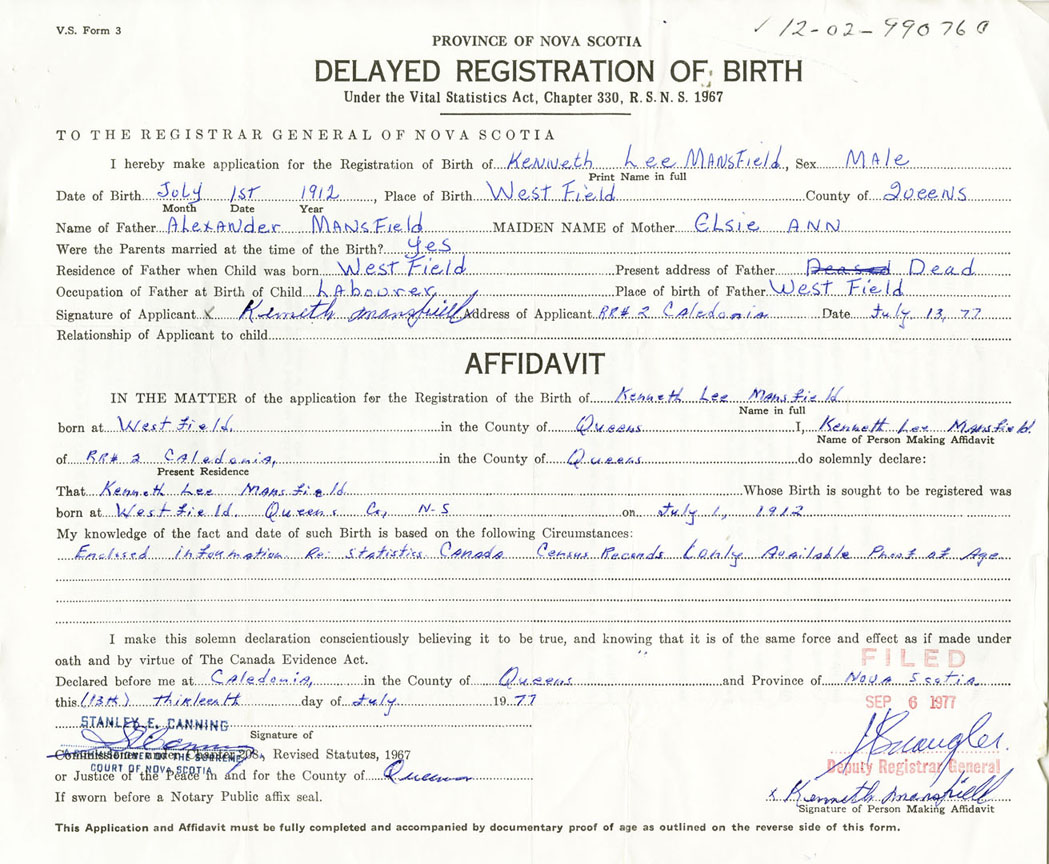 V.S. Form 3
12-02-990760
PROVINCE OF NOVA SCOTIA
DELAYED REGISTRATION OF BIRTH
Under the Vital Statistics Act, Chapter 330, R.S.N.S. 1967
TO THE REGISTRAR GENERAL OF NOVA SCOTIA
I hereby make application for the Registration of Birth of Kenneth Lee Mansfield, Sex Male
Print Name in full
Date of Birth July 1st 1912, Place of Birth West Field County of Queens
Month Date Year
Name of Father Alexander Mansfield MAIDEN NAME of Mother Elsie Ann
Were the Parents married at the time of the Birth? Yes
Residence of Father when Child was born West Field Present address of Father Deased Dead
Occupation of Father at Birth of Child Labourer Place of birth of Father West Field
Signature of Applicant x Kenneth Mansfield Address of Applicant RR# 2 Caledonia Date July 13, 77
Relationship of Applicant to child
AFFIDAVIT
IN THE MATTER of the application for the Registration of the Birth of Kenneth Lee Mansfield
Name in full
born at West Field, in the County of Queens I, Kenneth Lee Mansfield
Name of Person Making Affidavit
of RR# 2 Caledonia, in the County of Queens do solemnly declare:
Present Residence
That Kenneth Lee Mansfield Whose Birth is sought to be registered was
born at West Field, Queens Co, N-S on July 1, 1912
My knowledge of the fact and date of such Birth is based on the following Circumstances:
Enclosed information Re: Statistics Canada Census Records (only Available Proof of Age
I make this solemn declaration conscientiously believing it to be true, and knowing that it is of the same force and effect as if made under
oath and by virtue of The Canada Evidence Act.
FILED
Declared before me at Caledonia, in the County of Queens and Province of Nova Scotia
this (13th) thirteenth day of July 1977
SEP 6 1977
STANLEY E. CANNING
Signature of
A COMMISSIONER OF THE SUPREME
Commissioner under Chapter 208, Revised Statutes, 1967
COURT OF NOVA SCOTIA
Deputy Registrar General
or Justice of the Peace in and for the County of Queens
x Kenneth Mansfield
If sworn before a Notary Public affix seal.
Signature of Person Making Affidavit
This Application and Affidavit must be fully completed and accompanied by documentary proof of age as outlined on the reverse side of this form.